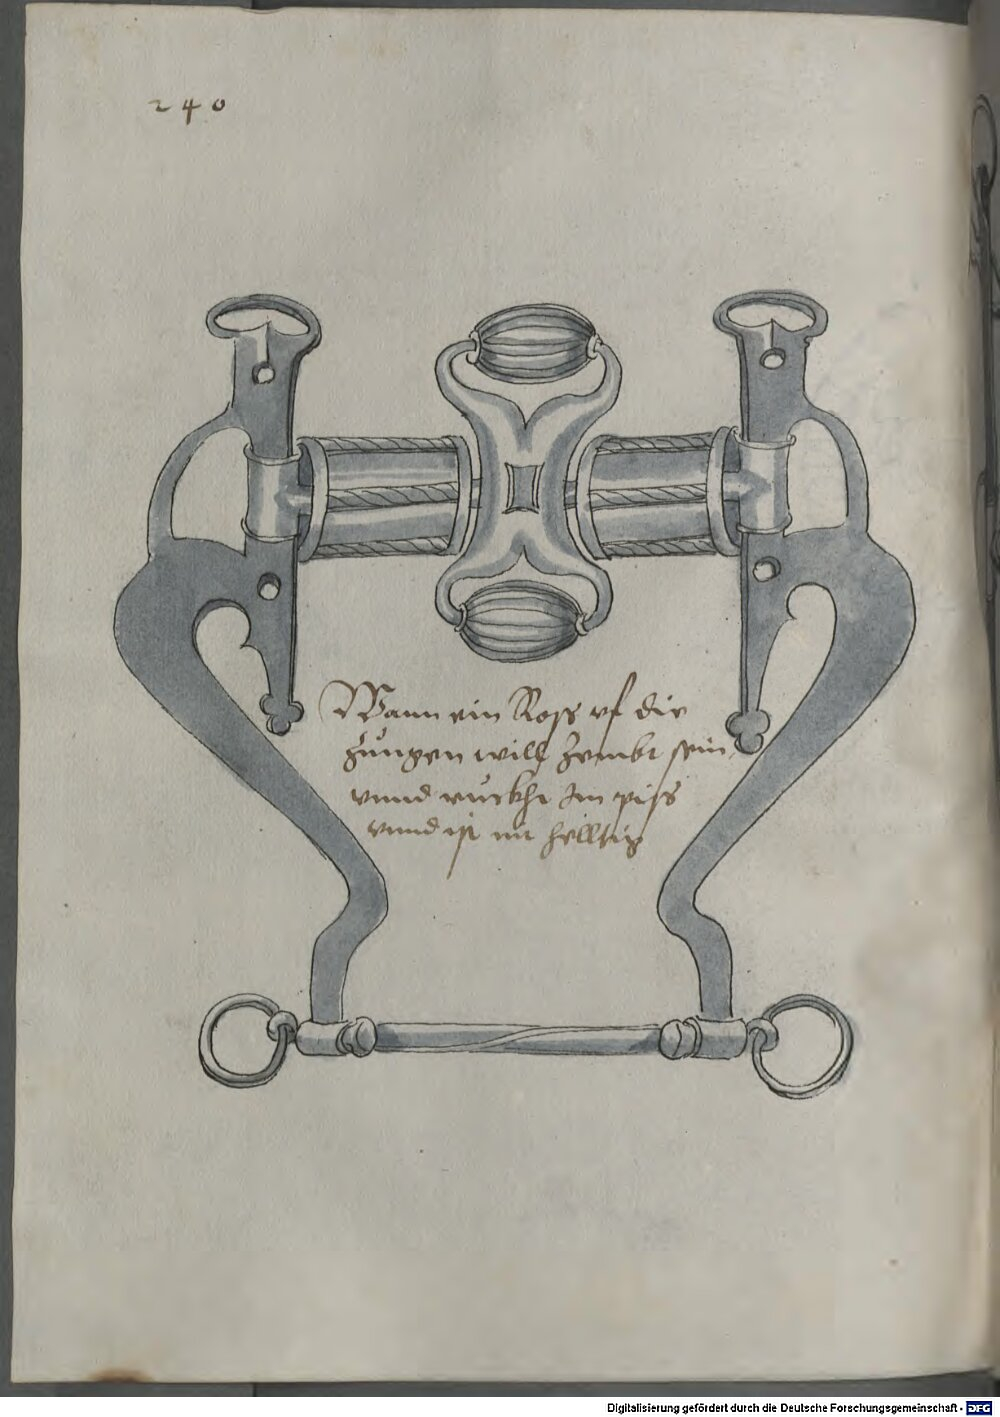 240
Wann ein Ross uf die
Zungen will zembt sein
vnnd ruckht Im piss
vnnd ist nit helltig
Digitalisierung gefördert durch die Deutsche Forschungsgemeinschaft - DFG